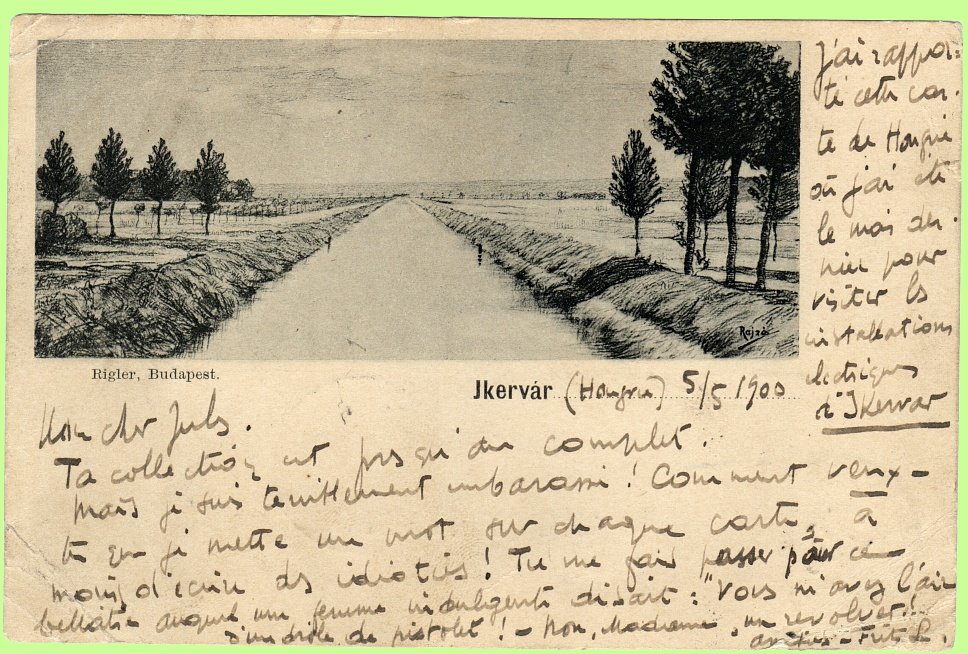 Rajzó
Rigler, Budapest.
Jkervár (Hongrie) 5/5 1900
J'ai rappor=
té cette car-
te de Hongrie
où j'ai été
le mois der-
nier pour
visiter les
installations
electriques
d'Ikervar
Mon cher Jules.
Ta collection est presqu'au complet.
Mais je suis terriblement embarassé! Comment veux-
tu que je mette un mot sur chaque carte, à
moins d'écrire des idioties! Tu me fais passer pour ce
bellâtre auquel une femme indulgente disait: "Vous m'avez l'air
d'un drôle de pistolet! - Non, Madame, un revolver!
Fritz L.